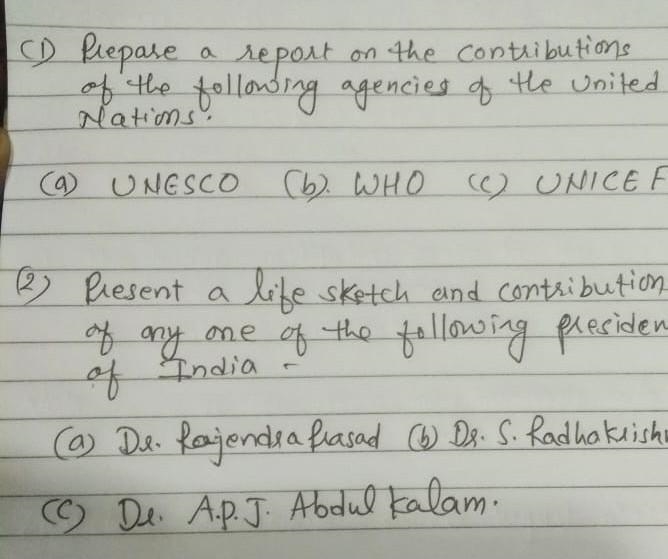 (1) Prepare a report on the contributions
of the following agencies of the United
Nations.
(a) UNESCO (b). WHO (c) UNICEF
(2) Present a life sketch and contribution
of any one of the following presiden
of India -
(a) Dr. Rajendra Prasad (b) Dr. S. Radhakrish
(c) Dr. A.P.J. Abdul Kalam.